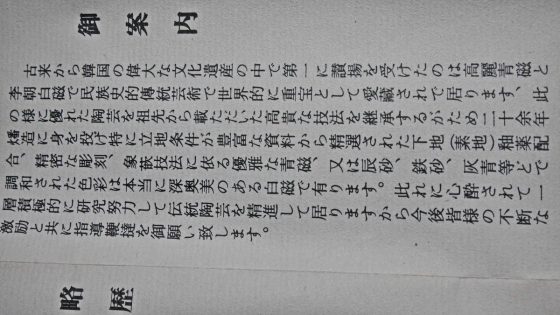 御案内
古来から韓国の偉大な文化遺産の中で第一に讃揚を受けたのは高麗青磁と
李朝白磁で民族史的傳統芸術で世界的に重宝として愛蔵されて居ります、此
の様に優れた陶芸を祖先から載ただいた高貴な技法を継承するがため二十余年
燔造に身を投げ特に立地条件が豊富な資料から精選された下地(素地)釉薬配
合、精密な彫刻、象嵌技法に依る優雅な青磁、又は辰砂、鉄砂、灰青等とで
調和された色彩は本当に深奥美のある白磁で有ります。此れに心酔されて一
層積極的に研究努力して伝統陶芸を精進して居りますから今後皆様の不断な
激励と共に指導鞭撻を御願い致します。
略歴